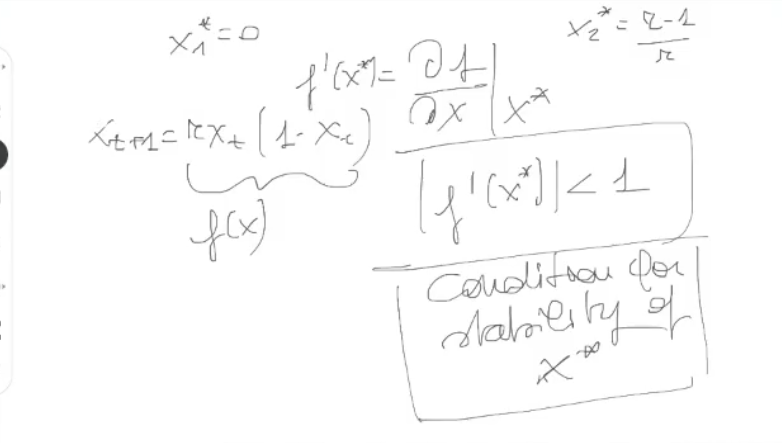 x₁* = 0
x₂* = (r-1)/r
f'(x*) = ∂f/∂x |x*
x_{t+1} = r x_t (1 - x_t)
f(x)
|f'(x*)| < 1
Condition for
stability of
x*